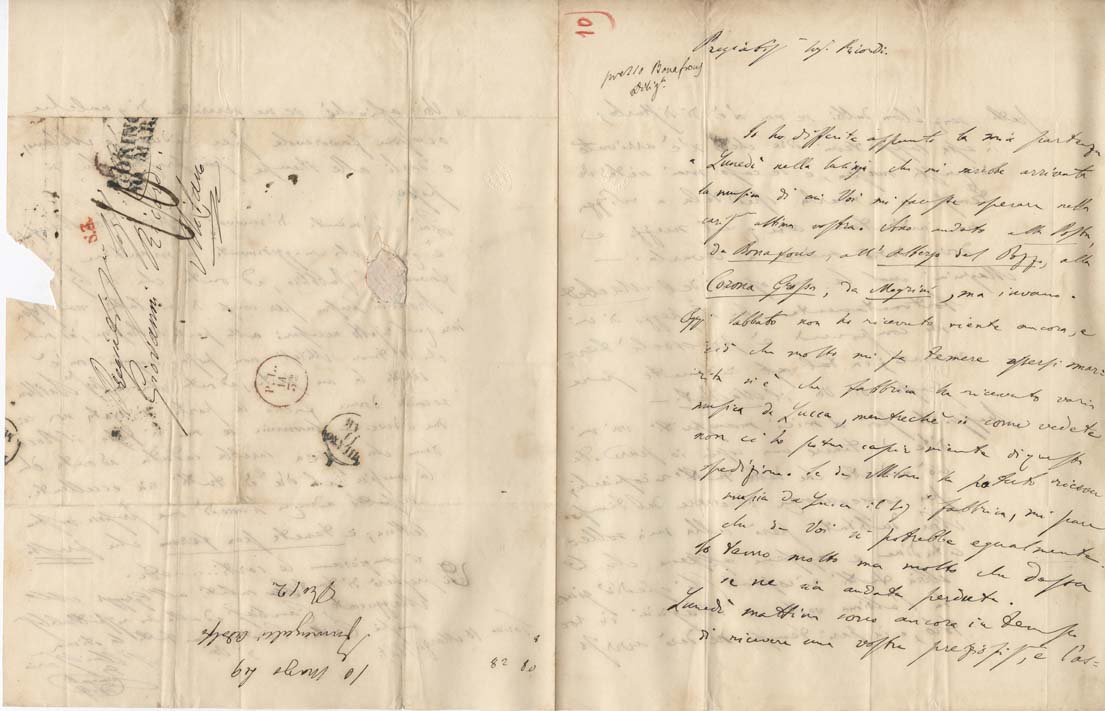 10
Sigr. Ricordi.
presso Bonafous
Io ho differito appunto la mia partenza
a Lunedì nella che mi sarebbe arrivata
la musica di cui Voi mi faceste sperare nella
ultima vostra. Sono andato alla Posta,
da Bonafous, all'Albergo del Pozzo, alla
Corona Grossa, da Magrini, ma invano.
Oggi Sabbato non ho ricevuto niente ancora, e
ciò che molto mi fa temere essersi smar-
rita si è che Fabbrica ha ricevuto varia
musica da Lucca, mentrechè come vedete
non ci ho potuto capir niente di questa
spedizione. Se da Milano ha potuto ricevere
musica da Lucca il Sigr. Fabbrica, mi pare
che da Voi si potrebbe egualmente.
Io temo molto ma molto che dessa
se ne sia andata perduta.
Lunedì mattina sono ancora in tempo
di ricevere una vostra pregiatiss, e l'as-
TORINO
10 MAR
Giovanni Ricordi
Milano
S.A.
MILANO
11
MR
10 Marzo 49
Fumagalli Adolfo
82 80
8